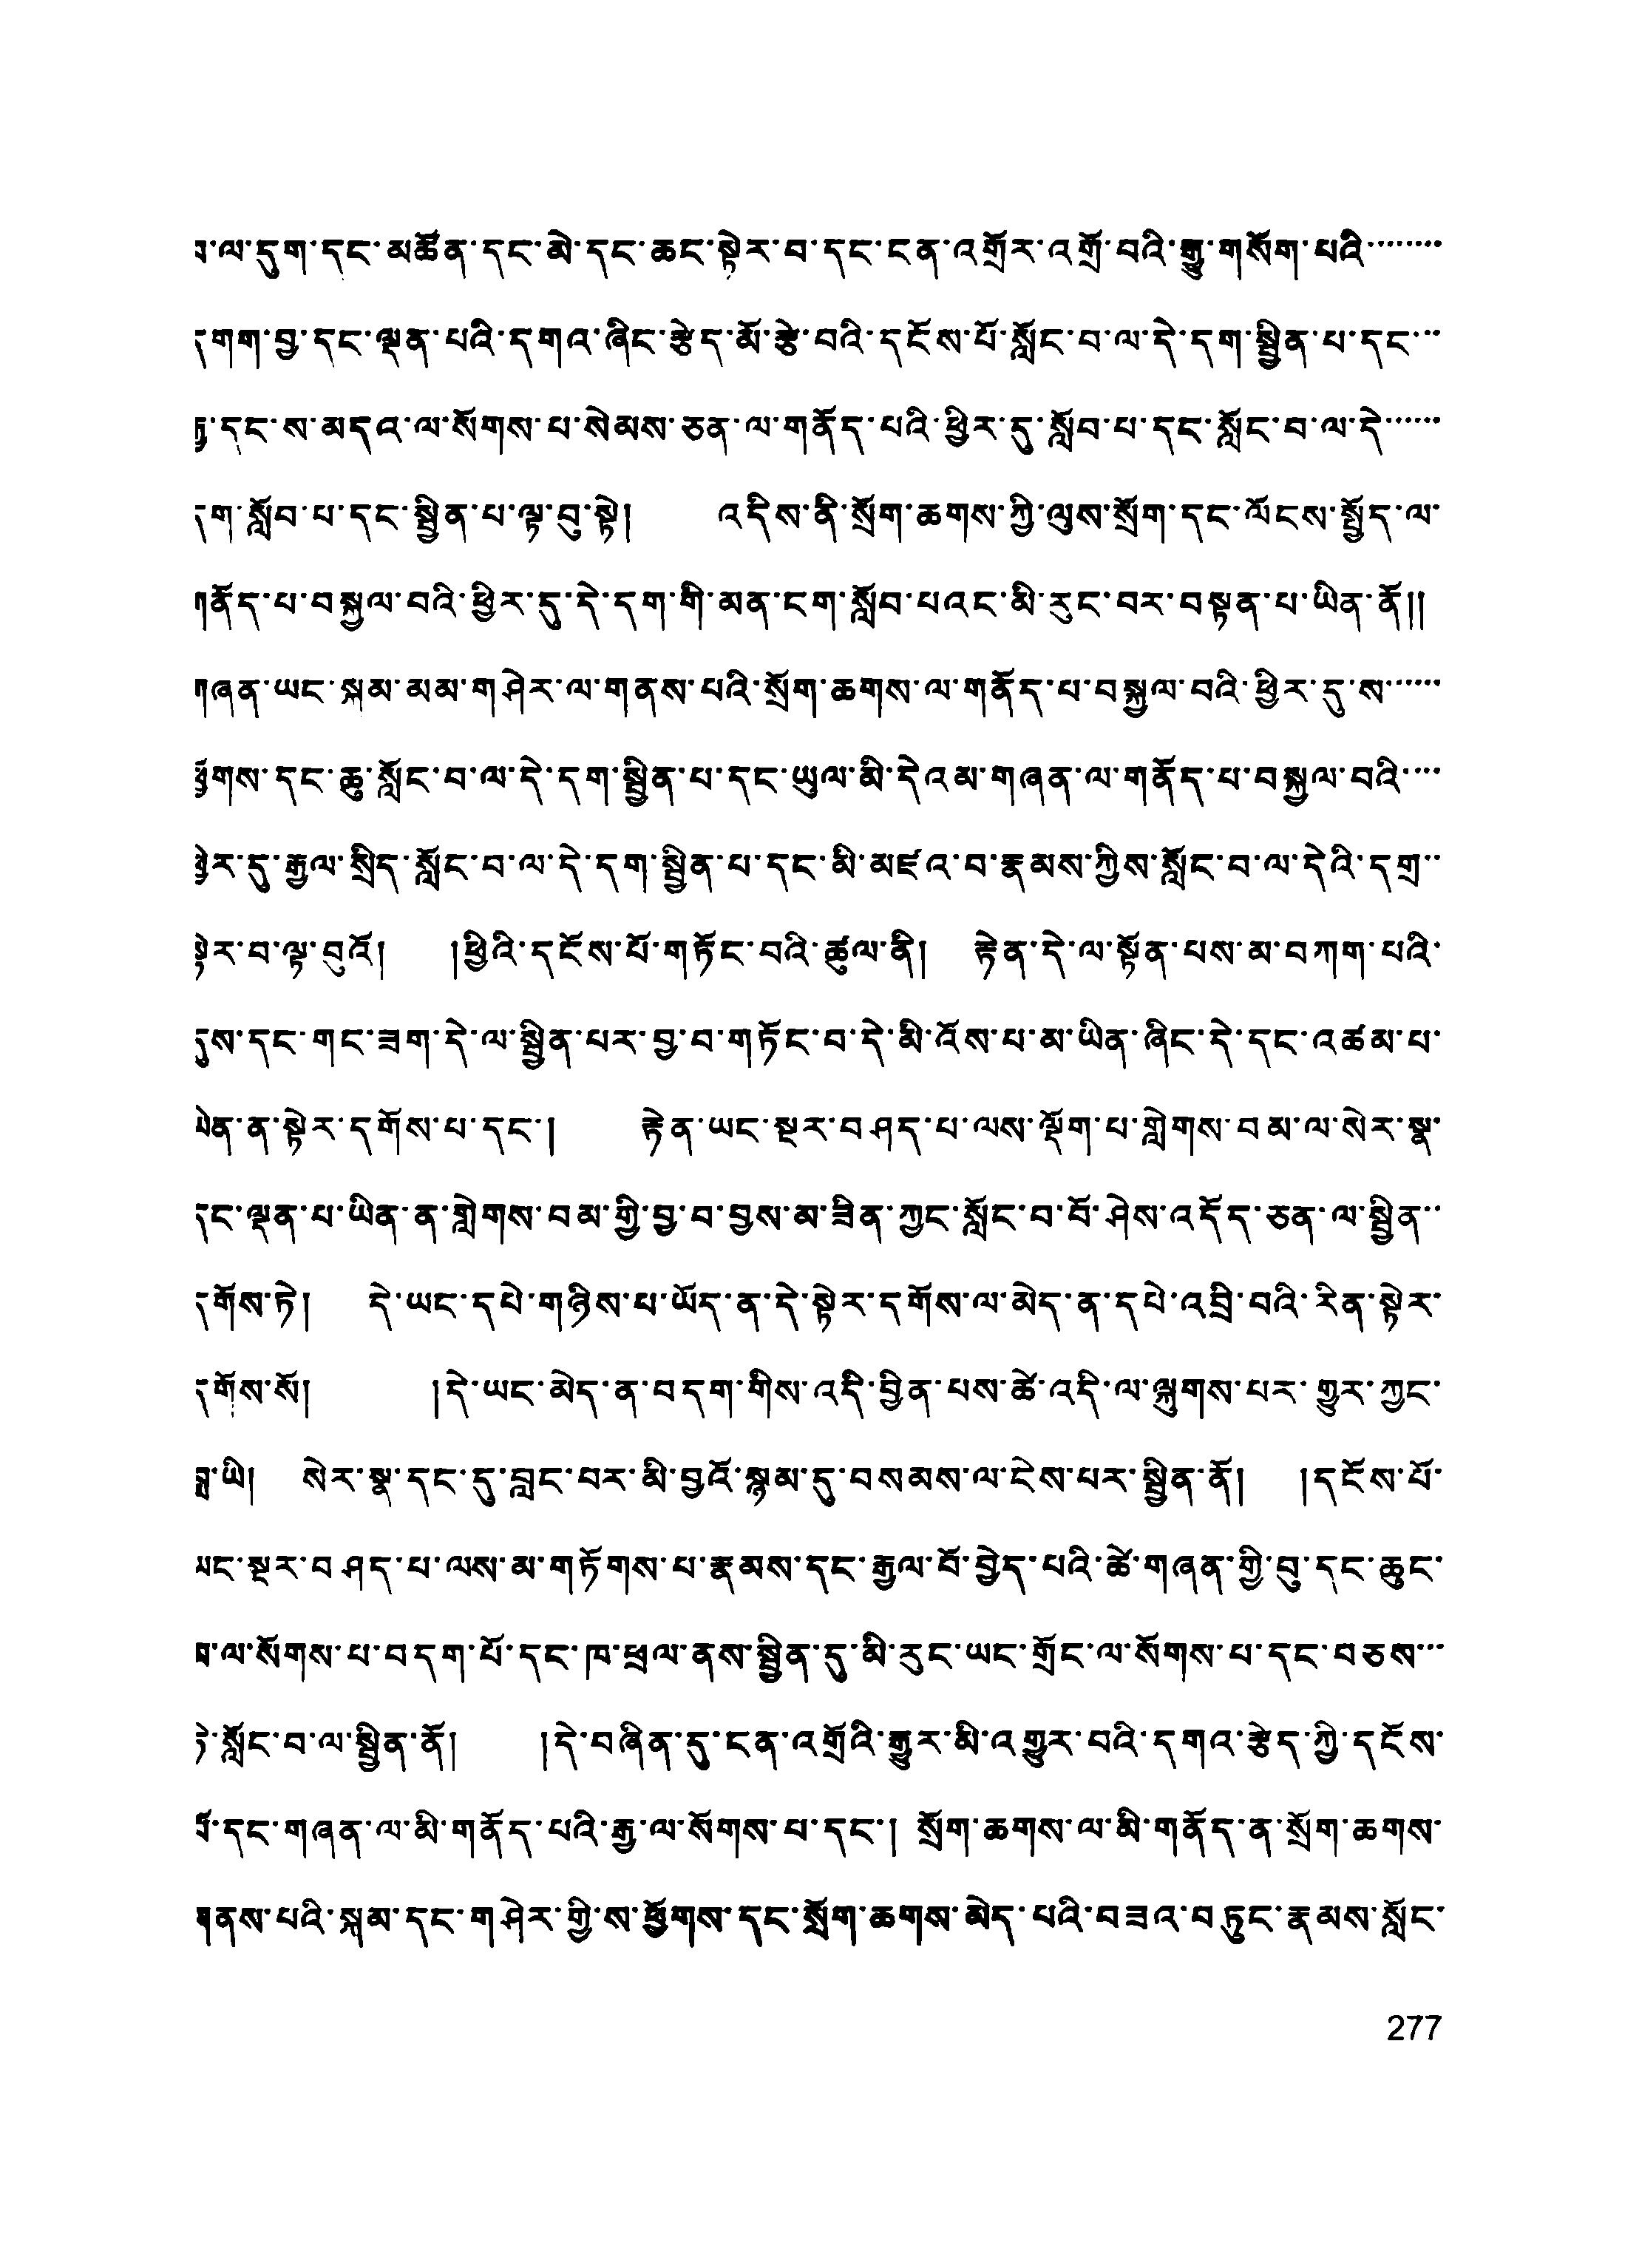 བ་ལ་དུག་དང་མཚོན་དང་མེ་དང་ཆང་སྟེར་བ་དང་ངན་འགྲོར་འགྲོ་བའི་རྒྱུ་གསོག་པའི་․․․․․․․
དགག་བྱ་དང་ལྡན་པའི་དགའ་ཞིང་རྩེད་མོ་རྩེ་བའི་དངོས་པོ་སློང་བ་ལ་དེ་དག་སྦྱིན་པ་དང་․․
རྒྱ་དང་ས་མདའ་ལ་སོགས་པ་སེམས་ཅན་ལ་གནོད་པའི་ཕྱིར་དུ་སློབ་པ་དང་སློང་བ་ལ་དེ་․․․․․
དག་སློབ་པ་དང་སྦྱིན་པ་ལྟ་བུ་སྟེ། འདིས་ནི་སྲོག་ཆགས་ཀྱི་ལུས་སྲོག་དང་ལོངས་སྤྱོད་ལ་
གནོད་པ་བསྐྱལ་བའི་ཕྱིར་དུ་དེ་དག་གི་མན་ངག་སློབ་པའང་མི་རུང་བར་བསྟན་པ་ཡིན་ནོ།།
གཞན་ཡང་སྐམ་མམ་གཤེར་ལ་གནས་པའི་སྲོག་ཆགས་ལ་གནོད་པ་བསྐྱལ་བའི་ཕྱིར་དུ་ས་․․․․․
ཕྱོགས་དང་ཆུ་སློང་བ་ལ་དེ་དག་སྦྱིན་པ་དང་ཡུལ་མི་དེའམ་གཞན་ལ་གནོད་པ་བསྐྱལ་བའི་․․․
ཕྱིར་དུ་རྒྱལ་སྲིད་སློང་བ་ལ་དེ་དག་སྦྱིན་པ་དང་མི་མཛའ་བ་རྣམས་ཀྱིས་སློང་བ་ལ་དེའི་དགྲ་․
སྟེར་བ་ལྟ་བུའོ། །ཕྱིའི་དངོས་པོ་གཏོང་བའི་ཚུལ་ནི། རྟེན་དེ་ལ་སྟོན་པས་མ་བཀག་པའི་
དུས་དང་གང་ཟག་དེ་ལ་སྦྱིན་པར་བྱ་བ་གཏོང་བ་དེ་མི་འོས་པ་མ་ཡིན་ཞིང་དེ་དང་འཚམ་པ་
ཡིན་ན་སྟེར་དགོས་པ་དང་། རྟེན་ཡང་སྔར་བཤད་པ་ལས་ལྡོག་པ་གླེགས་བམ་ལ་སེར་སྣ་
དང་ལྡན་པ་ཡིན་ན་གླེགས་བམ་གྱི་བྱ་བ་བྱས་མ་ཟིན་ཀྱང་སློང་བ་པོ་ཤེས་འདོད་ཅན་ལ་སྦྱིན་․
དགོས་ཏེ། དེ་ཡང་དཔེ་གཉིས་པ་ཡོད་ན་དེ་སྟེར་དགོས་ལ་མེད་ན་དཔེ་འབྲི་བའི་རིན་སྟེར་
དགོས་སོ། །དེ་ཡང་མེད་ན་བདག་གིས་འདི་བྱིན་པས་ཚེ་འདི་ལ་ལྐུགས་པར་གྱུར་ཀྱང་
བླ་ཡི། སེར་སྣ་དང་དུ་བླང་བར་མི་བྱའོ་སྙམ་དུ་བསམས་ལ་ངེས་པར་སྦྱིན་ནོ། །དངོས་པོ་
ཡང་སྔར་བཤད་པ་ལས་མ་གཏོགས་པ་རྣམས་དང་རྒྱལ་པོ་བྱེད་པའི་ཚེ་གཞན་གྱི་བུ་དང་ཆུང་
མ་ལ་སོགས་པ་བདག་པོ་དང་ཁ་ཕྲལ་ནས་སྦྱིན་དུ་མི་རུང་ཡང་གྲོང་ལ་སོགས་པ་དང་བཅས་․․
ཏེ་སློང་བ་ལ་སྦྱིན་ནོ། །དེ་བཞིན་དུ་ངན་འགྲོའི་རྒྱུར་མི་འགྱུར་བའི་དགའ་རྩེད་ཀྱི་དངོས་
པོ་དང་གཞན་ལ་མི་གནོད་པའི་རྒྱ་ལ་སོགས་པ་དང་། སྲོག་ཆགས་ལ་མི་གནོད་ན་སྲོག་ཆགས་
གནས་པའི་སྐམ་དང་གཤེར་གྱི་ས་ཕྱོགས་དང་སྲོག་ཆགས་མེད་པའི་བཟའ་བཏུང་རྣམས་སློང་
277